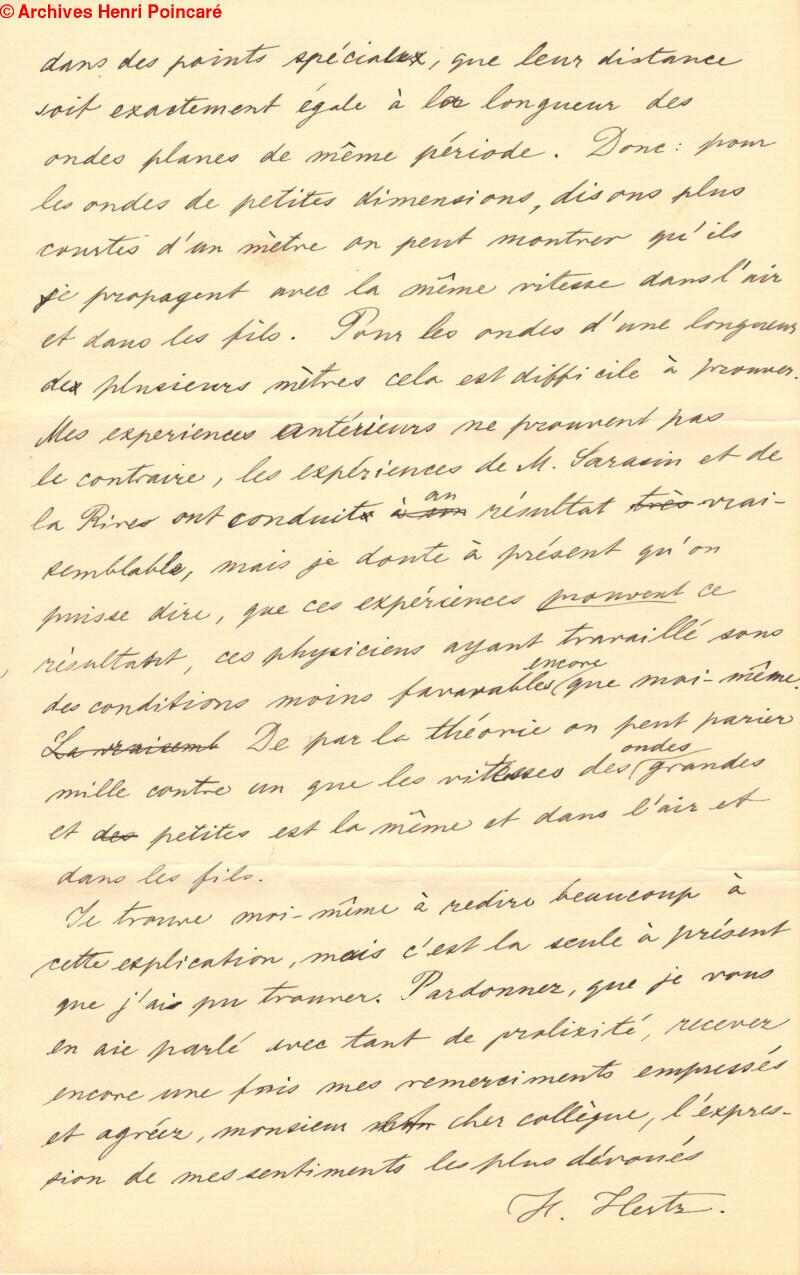 © Archives Henri Poincaré
dans des points spéciaux, que leur distance
soit exactement égale à la longueur des
ondes planes de même période. Donc: pour
les ondes de petites dimensions, disons plus
courtes d'un mètre on peut montrer qu'ils
se propagent avec la même vitesse dans l'air
et dans les fils. Pour les ondes d'une longueur
de plusieurs mètres cela est difficile à prouver.
Mes experiences antérieurs ne prouvent pas
le contraire, les expériences de M. Sarasin et de
la Rives ont conduit à un au résultat très vrai-
semblable, mais je doute à présent qu'on
puisse dire, que ces expériences prouvent ce
résultat, ces physiciens ayant travaillé sous
des conditions moins favarables encore que moi-même.
La vraisemb De par la théorie on peut parier
mille contre un que les vitesses des ondes grandes
et des petites est la même et dans l'air et
dans les fils.
Je trouve moi-même à redire beaucoup à
cette esplication, mais c'est la seule à présent
que j'ai pu trouver. Pardonnez, que je vous
en aie parlé avec tant de prolixité, recevez
encore une fois mes remerciments empressés
et agréez, monsieur cher collègue, l'expres-
sion de mes sentiments les plus dévoués
H. Hertz.